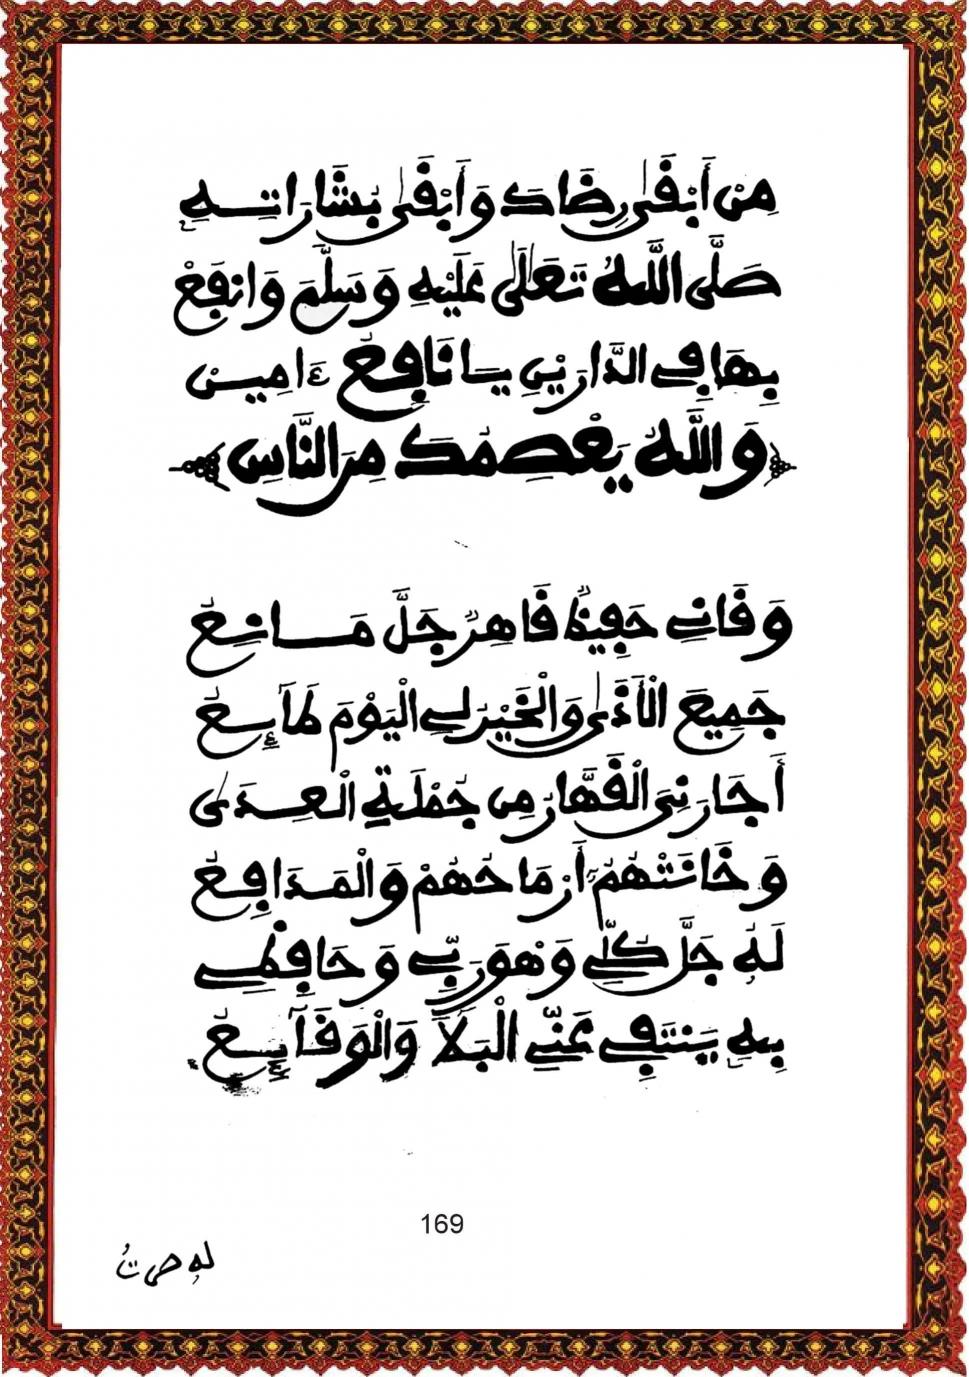 مِنْ أَبْقَىٰ رِضَاكَ وَأَبْقَىٰ بِشَارَاتِهِ
صَلَّى اللَّهُ تَعَالَىٰ عَلَيْهِ وَسَلَّمَ وَانفَعْ
بِهَا فِي الدَّارَيْنِ يَا نَافِعُ ءَامِين
وَاللَّهُ يَعْصِمُكَ مِنَ النَّاسِ
وَقَانِي حَفِيظٌ قَاهِرٌ جَلَّ مَانِعُ
جَمِيعَ الْأَذَىٰ وَالْخَيْرُ لِي الْيَوْمَ طَآئِعُ
أَجَارَنِيَ الْقَهَّارُ مِن جُمْلَةِ الْعِدَىٰ
وَخَانَتْهُمُ أَرْمَاحُهُمْ وَالْمَدَافِعُ
لَهُ جَلَّ كُلِّي وَهْوَ رَبِّي وَحَافِظِي
بِهِ يَنتَفِي عَنِّي الْبَلَا وَالْوَقَآئِعُ
169
له صرتُ